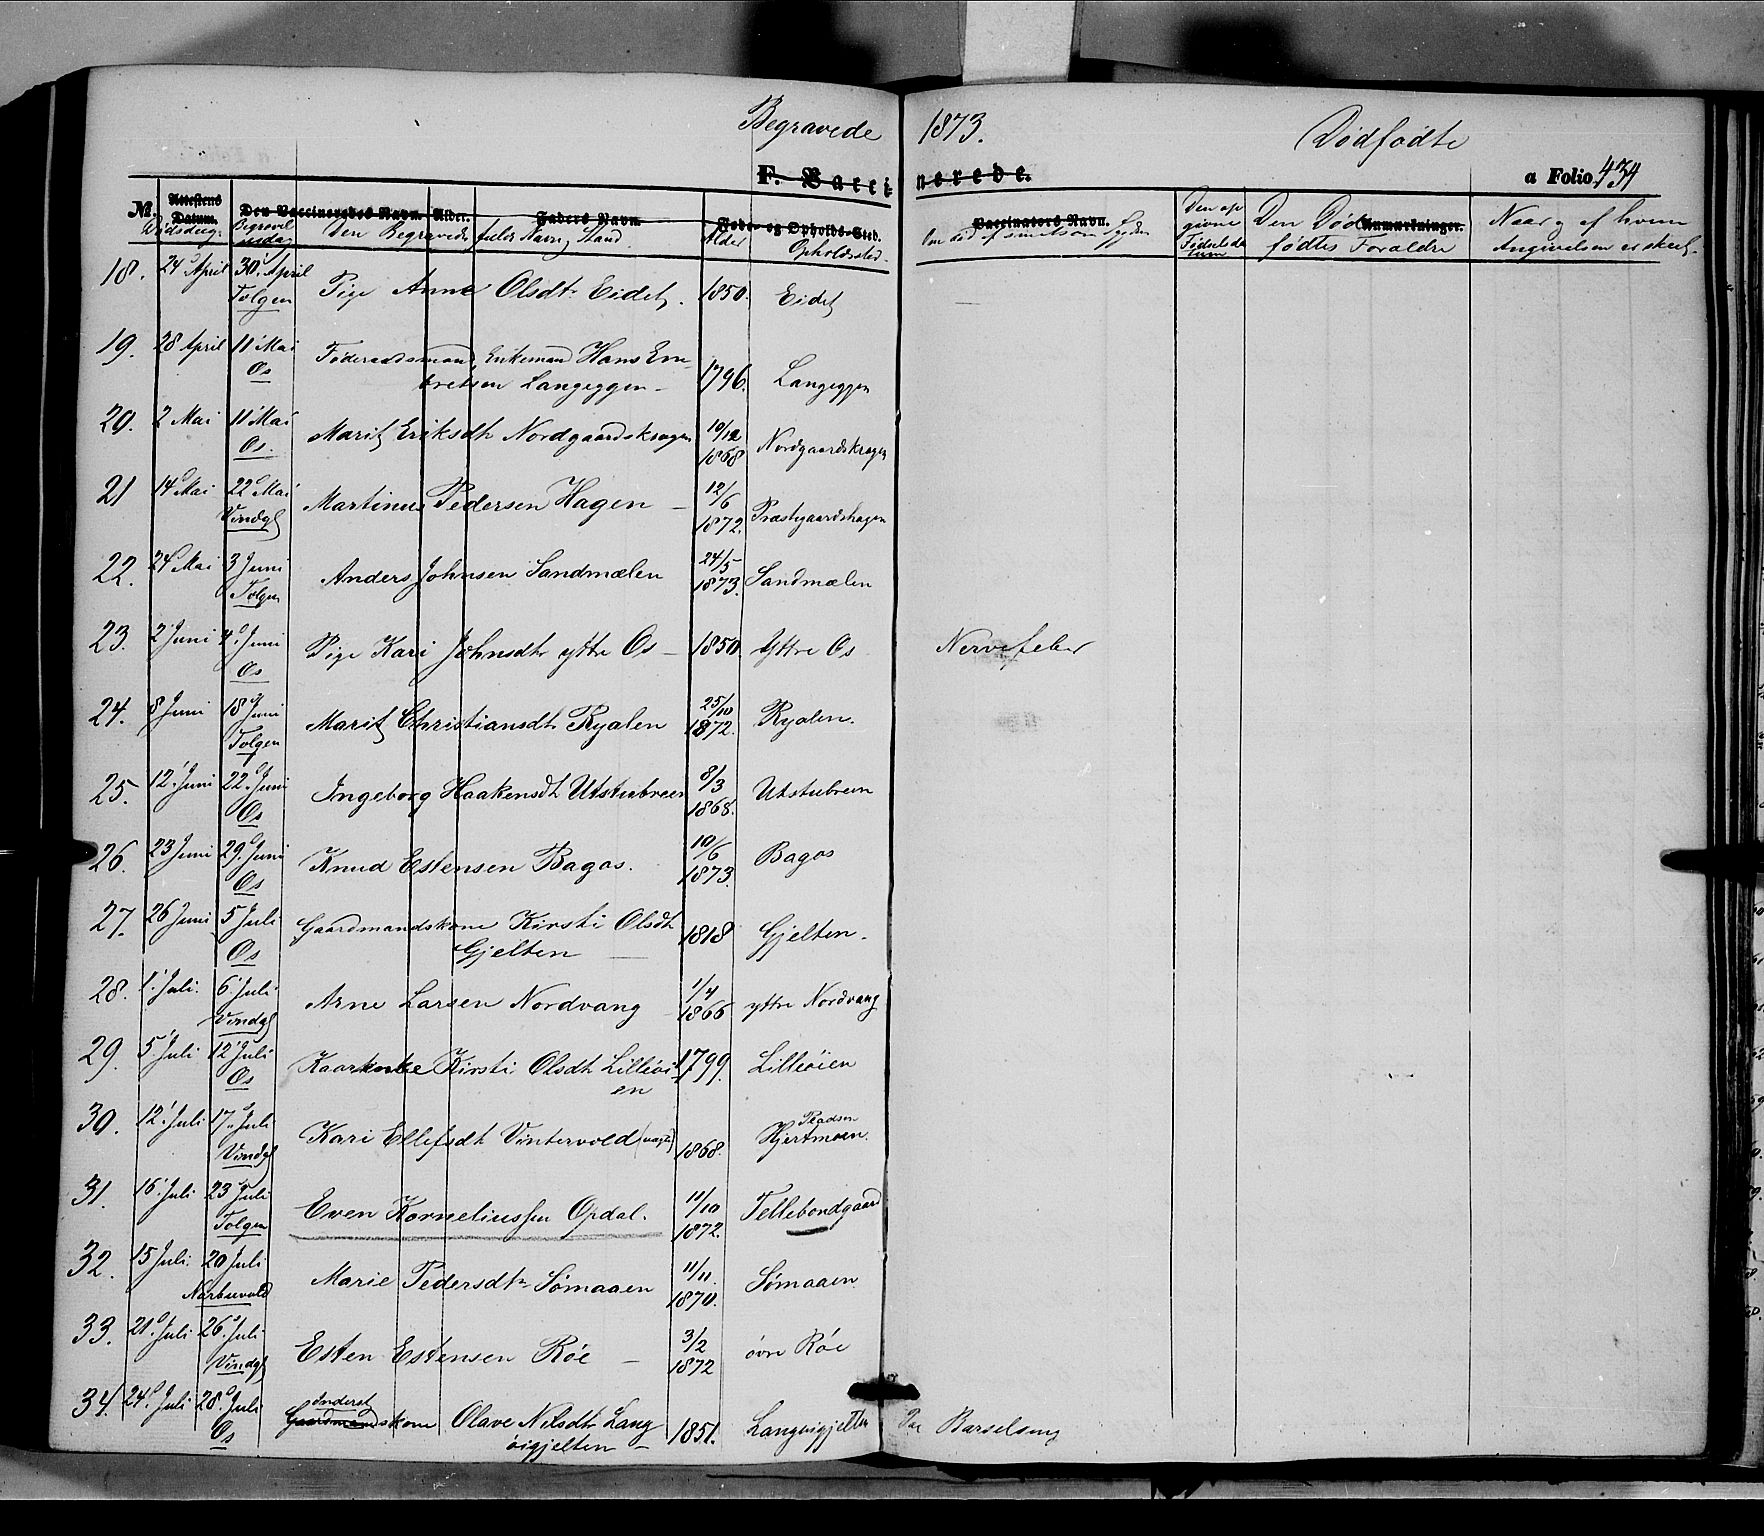 Begravede 1873. Dødfødte
F. Vaccinerede. a Folio 434
No. Attestens Datum. Den Vaccineredes Navn. Alder. Faders Navn. Føde- og Opholds-Sted. Vaccinators Navn. Anmærkninger.
Dødsdag. Begravelsesdag Den Begravedes fulde Navn og Stand. Alder Opholdssted. Om død af smitsom Sygdom Den opgivne Fødselsdatum Den Død fødtes Forældre Naar og af hvem Angivelsen er skeet.
18. 24 April 30. April Tolgen Pige Anne Olsdtr Eidet. 1850. Eidet
19. 28 April 11 Mai Os Føderaadsmand, Enkemand Hans Em
bretsen Langeggen 1796. Langeggen
20. 2 Mai 11 Mai Os. Marit Eriksdt Nordgaardskragen 10/12 1868 Nordgaardskragen
21 14 Mai 22 Mai Vindgl Martinus Pedersen Hagen 12/6 1872. Præstegaardshagen
22. 24 Mai 3 Juni Tolgen Anders Johnsen Sandmælen 24/5 1873. Sandmælen
23. 2 Juni 4. Juni Os Pige Kari Johnsdtr yttre Os 1850 Yttre Os Nervefeber
24. 8 Juni 18 Juni Tolgen Marit Christiansdt Ryalen 25/10 1872. Ryalen.
25. 12. Juni 22. Juni Os Ingeborg Haakensdt Utstubreen 8/3 1868. Utstubreen
26. 23 Juni 29. Juni Os Knud Estensen Bagos. 10/6 1873. Bagos
27. 26 Juni 5 Juli Os Gaardmandskone Kirsti Olsdt
Gjelten 1818 Gjelten.
28. 1. Juli. 6. Juli Vindgl Arne Larsen Nordvang 1/4 1866 yttre Nordvang
29. 5. Juli 12 Juli Os Kaarenke Kirsti Olsdt Lilleøi
en 1799. Lilleøien
30. 12. Juli 17. Juli Vindgl Kari Ellefsdt Vintervold 1868. Hjertmoen.
31. 16. Juli 23 Juli Tolgen Even Korneliussen Opdal. 11/10 1872. Tellebondgaard
32. 15 Juli. 20 Juli Narbuvold Marie Pedersdtr Sømaaen 11/11. 1870. Sømaaen
33. 21. Juli 26. Juli Vindgl Esten Estensen Røe 3/2 1872 øvre Røe
34. 24. Juli 28. Juli Os Inderst
Gaardmandskone Olave Nilsdtr Lang
øigjelten 1851. Langøigjelten Paa Barselseng